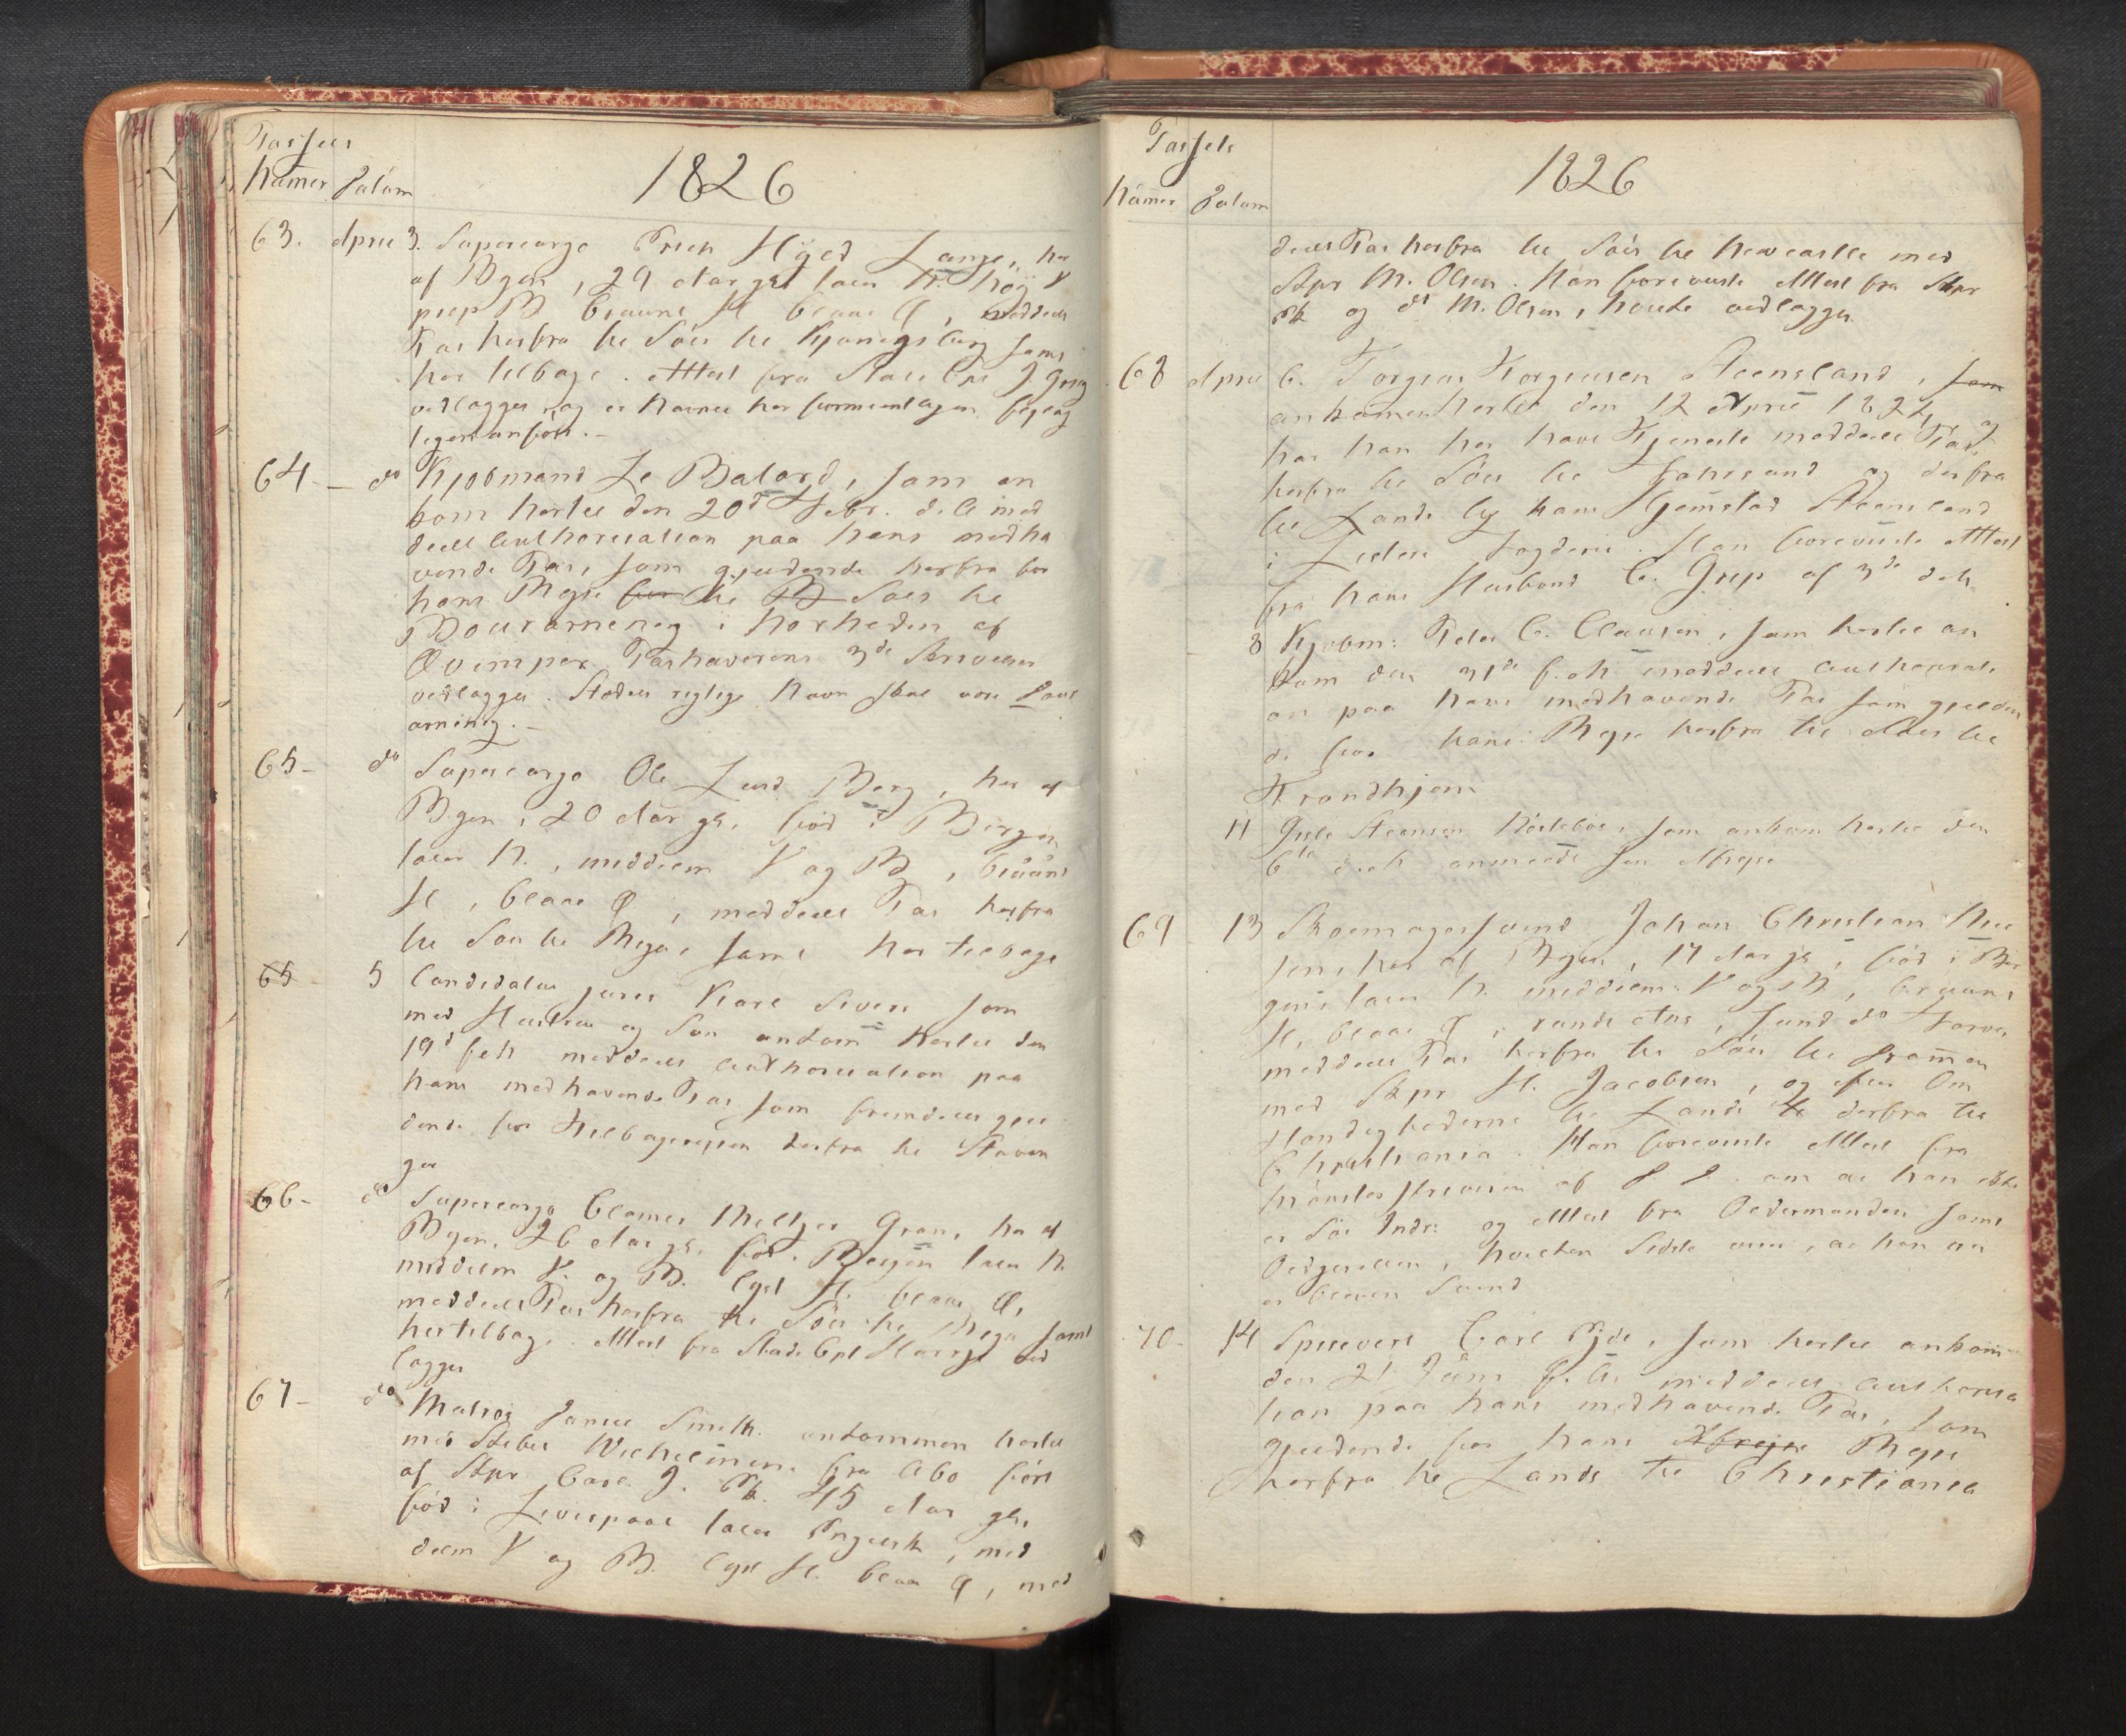 Passets
Nummer Datum
1826
63. April 3. Supercargo Erich Hyed Lange, her
af Byen, 29 Aar gl taler N. høy V
prop B brune H blaae Ø, meddeelt
Pas herfra til Søes til Kønigsberg samt
her tilbage. Attest fra Stads Cpt J. Grieg
vedlægges og er Navnet her
ligen anført.-
64 - do Kjøbmand Le Balard, som an
kom hertil den 20de Febr. d. A. med
deelt Authorisation paa hans medha
vende Pas, som gjeldende herfra for
hans Reyse for til B Søes til
i Nærheden af
Qvimper. Pashaverens 3de
vedlægges. Stedets rigtige Navn skal være
arneneg.-
65 - do Supercargo Ole Lund Berg, her af
Byen, 20 Aar gl, fød i Bergen
taler N., middelm V og B, bruunt
H, blaae Ø, meddeelt Pas herfra
til Søes til Riga, samt her tilbage
65 5 Candidatus juris Koren som
med Hustrue og Søn ankom hertil den
19d f. M meddeelt Authorisation paa
hans medhavende Pas som fremdeles gjel
dende for Tilbagereysen herfra til Stavan
ger
66 - do Supercargo Clamer Meltzer Gran, her af
Byen, 26 Aar gl, fød i Bergen taler N.
middelm V. og B. lyst H. blaae Ø,
meddeelt Pas herfra til Søes til Riga samt
hertilbage. Attest fra Stads Cpt ved
lægges
67 - do Matros James Smith. ankommen hertil
med Skibet Wilhelmine fra Abo ført
af Skpr Carl J. 45 Aar gl,
fød i Liverpool taler Engelsk, mid
delm V og B. lyst H. blaa Ø, med
Passets
Nummer Datum
1826
deelt Pas herfra til Søes til Newcastle med
Skpr M. Olsen. Han foreviiste Attest fra Skpr
og do M. Olsen, hvilke vedlægges
68 April 6. Torgeus Torgeusen Steensland, som
ankommen hertil den 12 April 1824, og
har han her havt Tjeneste meddeelt Pas,
herfra til Søes til Farsund og derfra
til Lands til hans Hjemstad Steensland
i Lister Fogderie. Han foreviiste Attest
fra hans Huusbond C. Grip af 3de d. M.
8 Kjøbm: Peter C. Clausen, som hertil an
kom den 31te f. M meddeelt Authorisati
on paa hans medhavende Pas som gjelden
de for hans Reyse herfra til Søes til
Trondhjem
11 Gisle Steensen som ankom hertil den
6te d. M anmeldt sin Afreyse
69 - 13 Skoemagersvend Johan Christian Niel
sen, her af Byen, 17 Aar gl, fød i Ber
gen, taler N. middelm. V og B, bruunt
H, blaae Ø, rundt Ans, sund do Farve
meddeelt Pas herfra til Søes til Drammen
med Skpr H. Jacobsen, og efter Om
stændighederne til Lands til derfra til
Christiania. Han foreviiste Attest fra
af D. D. om at han ikke
er Søe Indr: og Attest fra Oldermanden samt
Oldgesellen, hvilken Sidste viser, at han nu
er bleven Svend
70 - 14 Carl som hertil ankom
den 21 Juni f. A. meddeelt Authorisa
tion paa hans medhavende Pas, som
gjeldende for hans Afreyse Reyse
herfra til Lands til Christiania